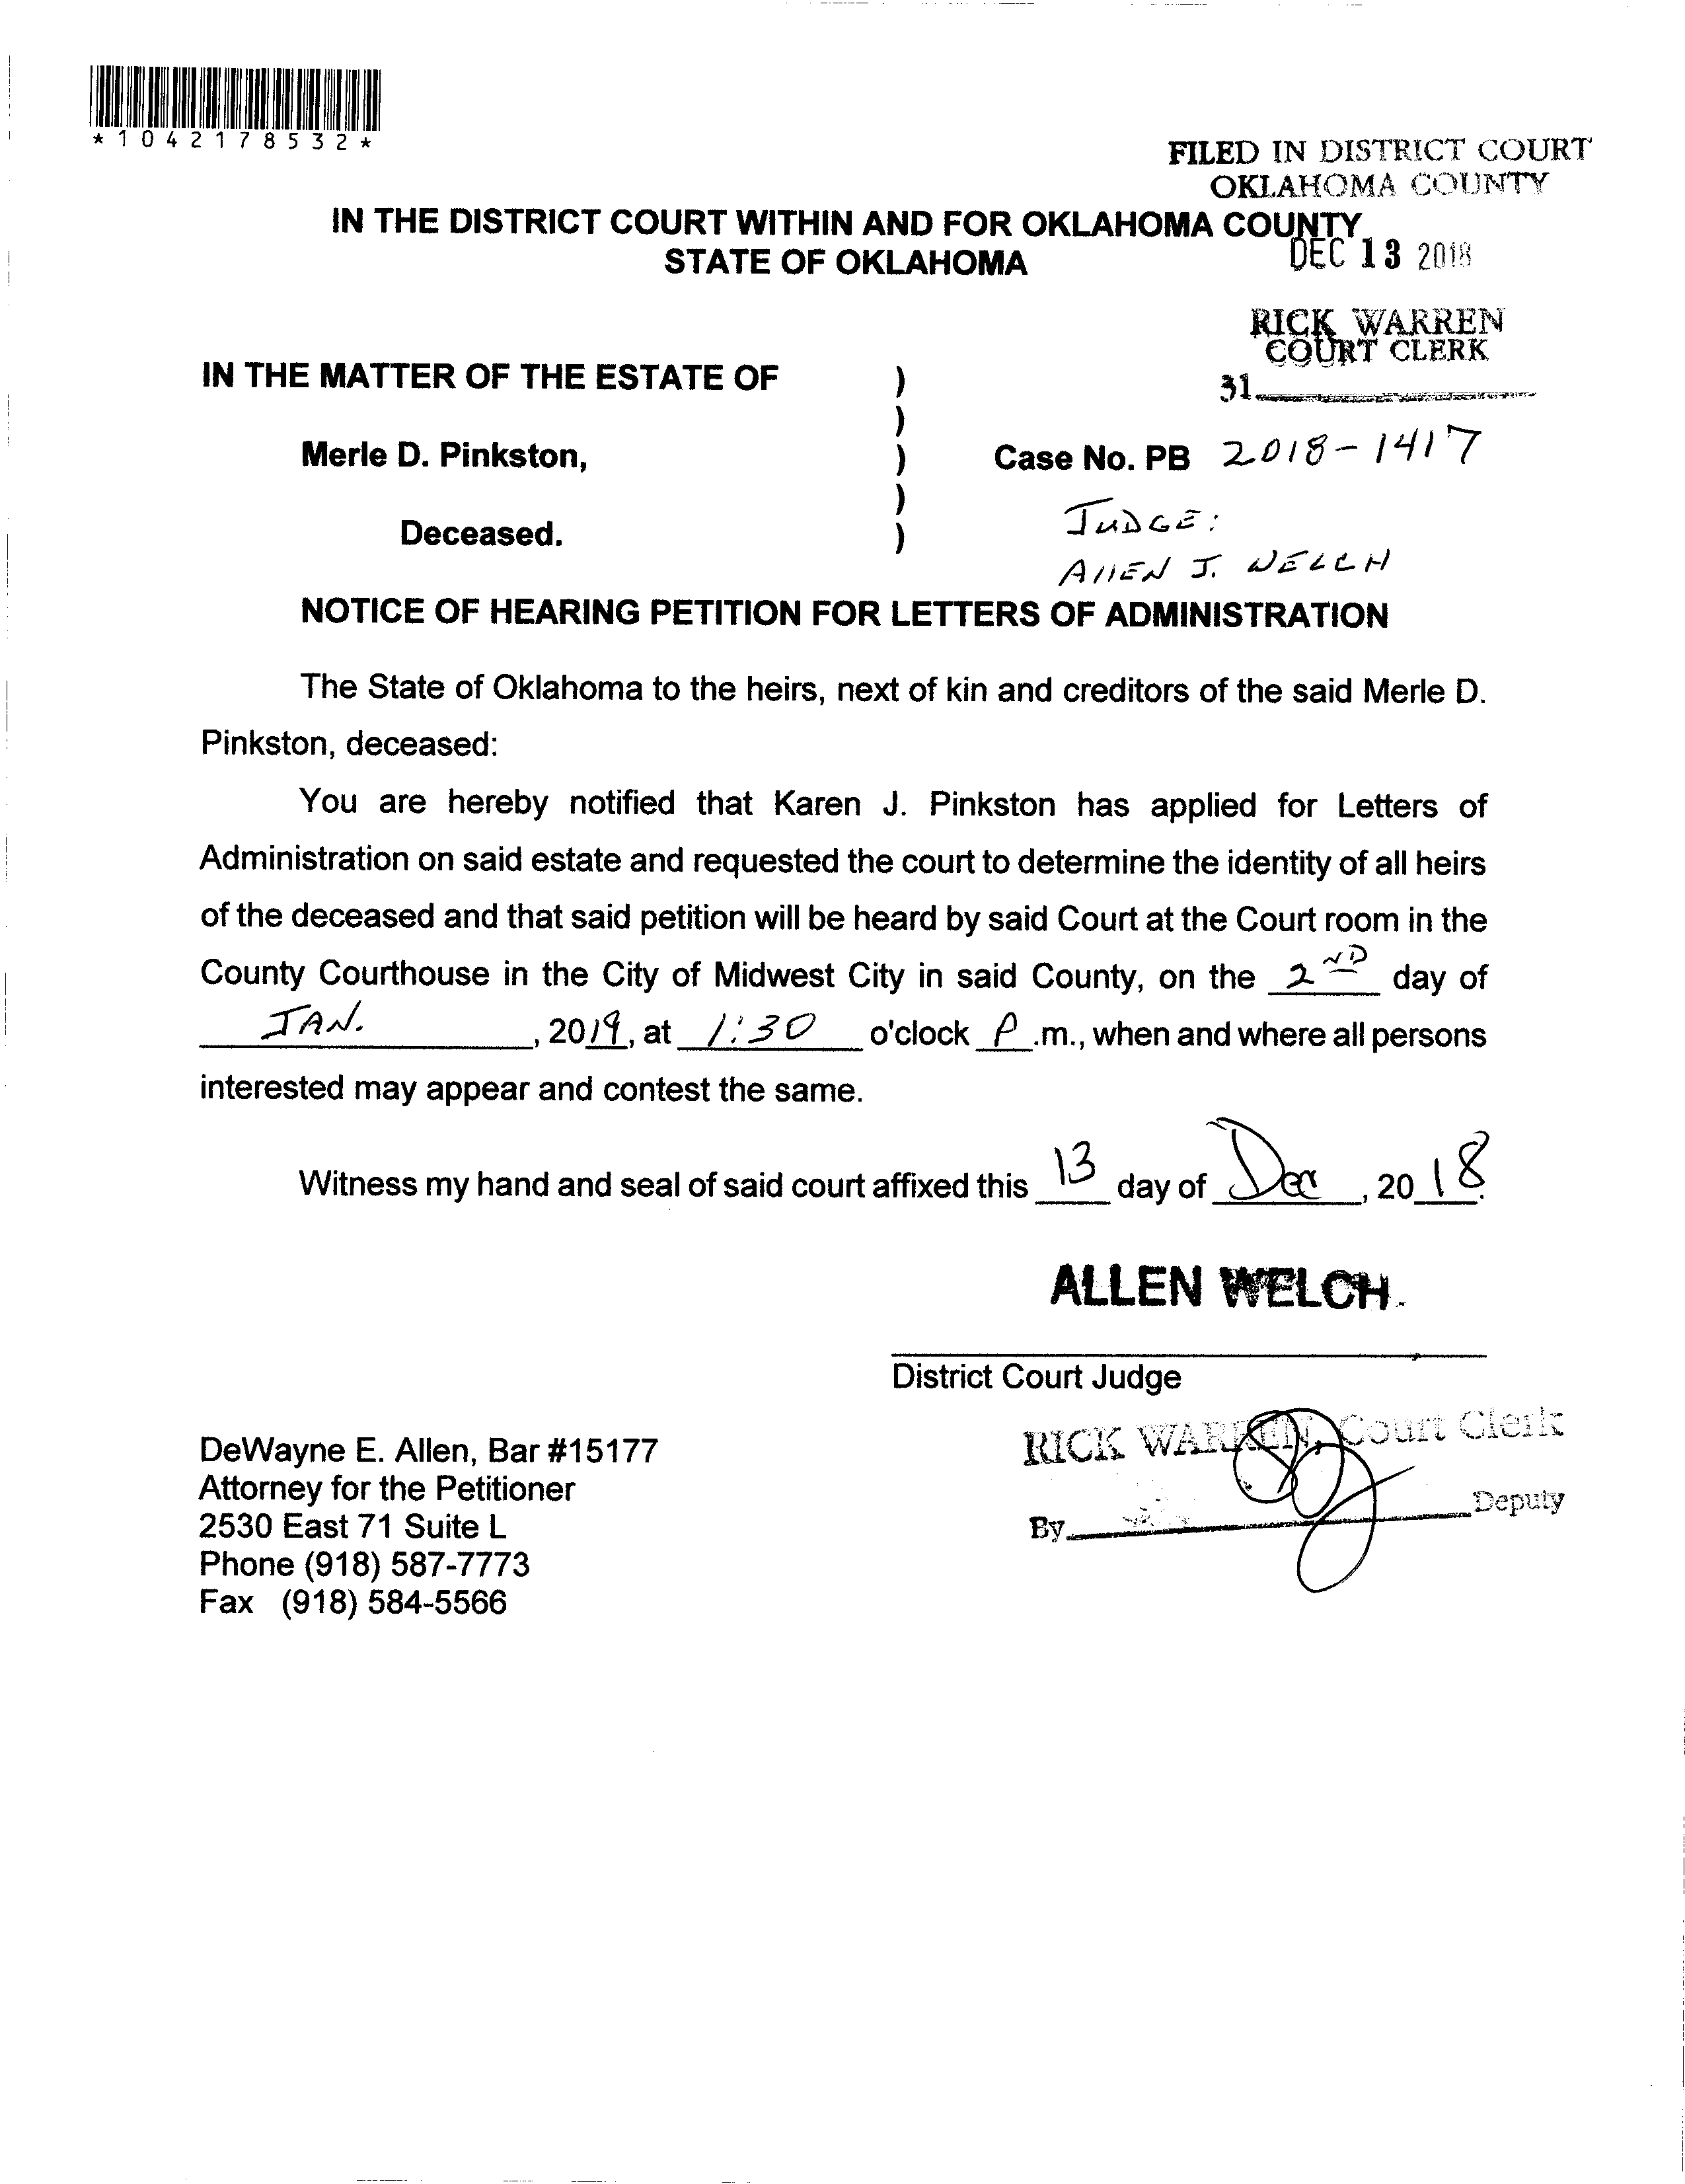 *1042178532*
FILED IN DISTRICT COURT
OKLAHOMA COUNTY
IN THE DISTRICT COURT WITHIN AND FOR OKLAHOMA COUNTY
STATE OF OKLAHOMA
DEC 13 2018
RICK WARREN
COURT CLERK
31
IN THE MATTER OF THE ESTATE OF )
)
Merle D. Pinkston, ) Case No. PB 2018-1417
)
Deceased. )
JUDGE:
ALLEN J. WELCH
NOTICE OF HEARING PETITION FOR LETTERS OF ADMINISTRATION
The State of Oklahoma to the heirs, next of kin and creditors of the said Merle D.
Pinkston, deceased:
You are hereby notified that Karen J. Pinkston has applied for Letters of
Administration on said estate and requested the court to determine the identity of all heirs
of the deceased and that said petition will be heard by said Court at the Court room in the
County Courthouse in the City of Midwest City in said County, on the 2ND day of
JAN., 2019, at 1:30 o'clock P.m., when and where all persons
interested may appear and contest the same.
Witness my hand and seal of said court affixed this 13 day of Dec, 2018.
ALLEN WELCH
District Court Judge
RICK WARREN, Court Clerk
By Deputy
DeWayne E. Allen, Bar #15177
Attorney for the Petitioner
2530 East 71 Suite L
Phone (918) 587-7773
Fax (918) 584-5566